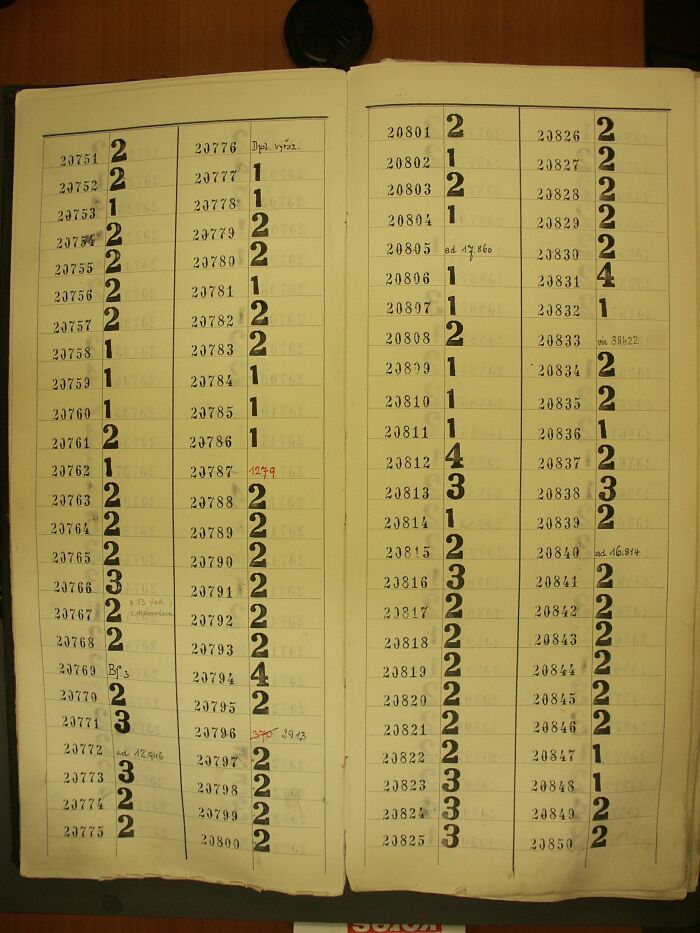 20751 2
20752 2
20753 1
20754 2
20755 2
20756 2
20757 2
20758 1
20759 1
20760 1
20761 2
20762 1
20763 2
20764 2
20765 2
20766 3
20767 2
20768 2
20769 Bf 3
20770 2
20771 3
20772 ad 12.946
20773 3
20774 2
20775 2
20776 Dpl. vyřaz.
20777 1
20778 1
20779 2
20780 2
20781 1
20782 2
20783 2
20784 1
20785 1
20786 1
20787 1279
20788 2
20789 2
20790 2
20791 2
20792 2
20793 2
20794 4
20795 2
20796 370 2913
20797 2
20798 2
20799 2
20800 2
20801 2
20802 1
20803 2
20804 1
20805 ad 17.860
20806 1
20807 1
20808 2
20809 1
20810 1
20811 1
20812 4
20813 3
20814 1
20815 2
20816 3
20817 2
20818 2
20819 2
20820 2
20821 2
20822 2
20823 3
20824 3
20825 3
20826 2
20827 2
20828 2
20829 2
20830 2
20831 4
20832 1
20833 viz 38422
20834 2
20835 2
20836 1
20837 2
20838 3
20839 2
20840 ad 16.814
20841 2
20842 2
20843 2
20844 2
20845 2
20846 2
20847 1
20848 1
20849 2
20850 2